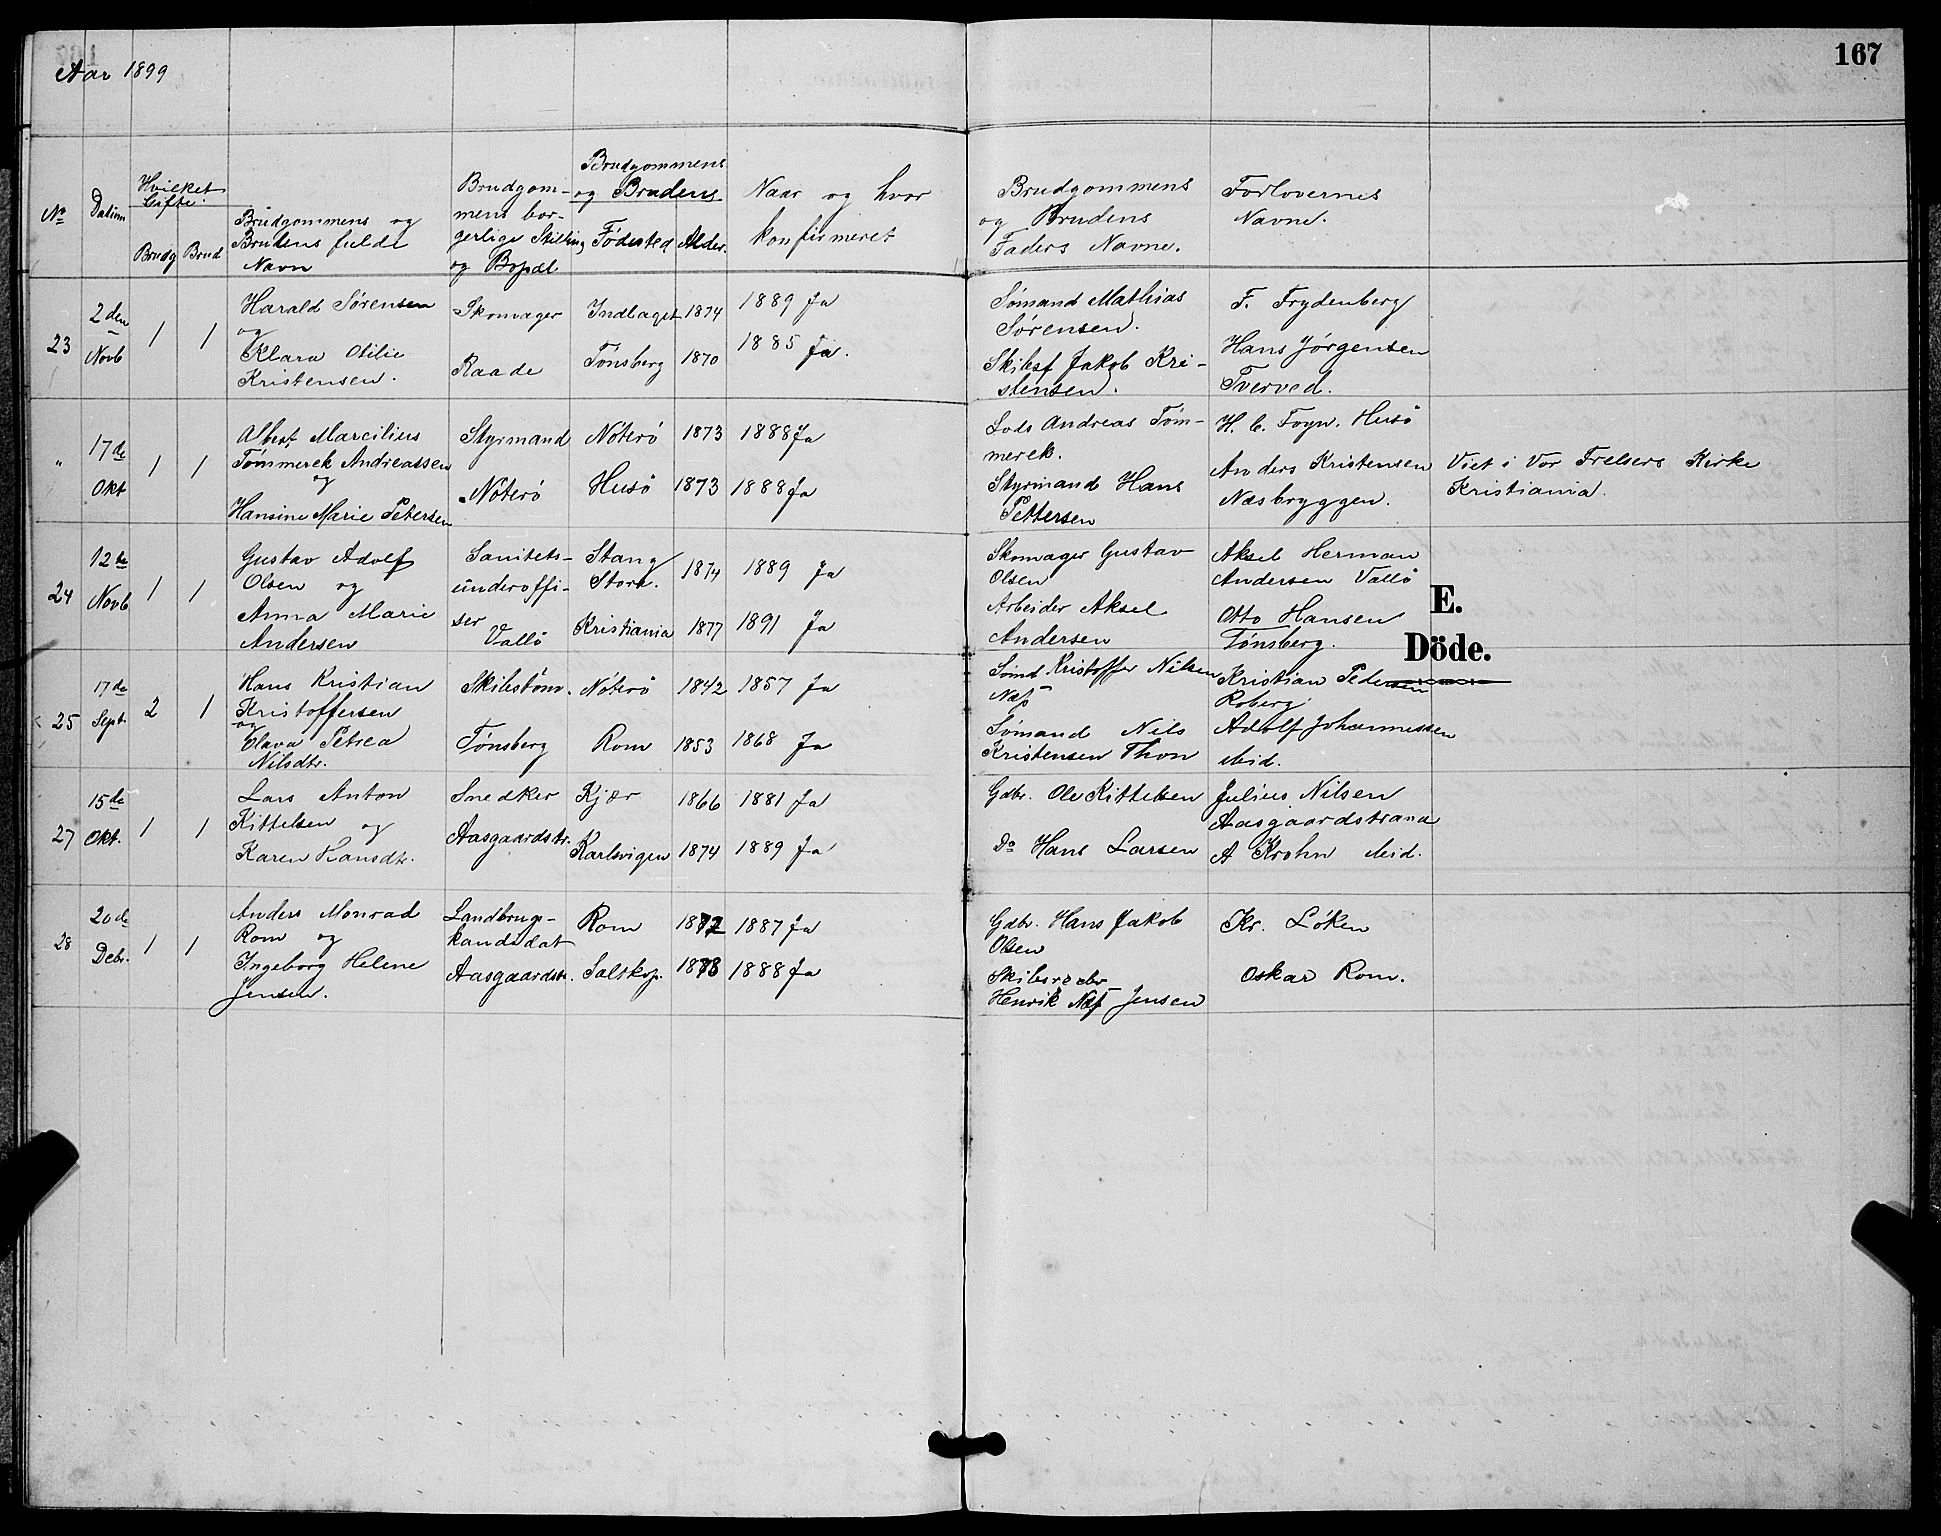 Aar 1899
167
No
Datum
Hvilket
Gifte.
Brudg Brud
Brudgommens og
Brudens fulde
Navn
Brudgom-
mens bor-
gerlige Stilling
og Bopæl
Brudgommens
og Brudens
Fødested Alder.
Naar og hvor
konfirmeret
Brudgommens
og Brudens
Faders Navne.
Forlovernes
Navne.
23
2den
Novb
1 1
Harald Sørensen
og
Klara Otilie
Kristensen.
Skomager
Raade
Indlaget 1874
Tønsberg 1870
1889 Ja
1885 Ja.
Sömand Mathias
Sørensen.
Skibsf Jakob Kri-
stensen.
F. Frydenberg
Hans Jørgensen
Tverved.
"
17de
Okt
1 1
Albert Marcilius
Tømmerek Andreassen
og
Hansine Marie Petersen
Styrmand
Nöterö
Nöterö 1873
Husö 1873
1888 Ja
1888 Ja
Lods Andreas Töm-
merek.
Styrmand Hans
Pettersen
H. C. Foyn. Husö
Anders Kristensen
Næsbryggen.
Viet i Vor Frelsers Kirke
Kristiania.
24
12te
Novb
1 1
Gustav Adolf
Olsen og
Anna Marie
Andersen
Sanitets-
underoffi-
ser
Vallö
Stang
Stork. 1874
Kristiania 1877
1889 Ja
1891 Ja
Skomager Gustav
Olsen
Arbeider Aksel
Andersen
Aksel Herman
Andersen Vallö
Otto Hansen
Tønsberg.
E.
Döde.
25
17de
Sept.
2 1
Hans Kristian
Kristoffersen
og
Elava Petrea
Nilsdtr.
Skibstöm.
Tønsberg
Nöterö 1842
Rom 1853
1857 Ja
1868 Ja
Sömd Kristoffer Nilsen
Næs
Sømand Nils
Kristensen Thon
Kristian Pedersen
Roberg
Adolf Johannessen
ibid.
27
15de
Okt.
1 1
Lars Anton
Kittelsen og
Karen Hansdtr.
Snedker
Aasgaardstr.
Kjær 1866
Karlsvigen 1874
1881 Ja
1889 Ja
Gdbr. Ole Kittelsen
Do Hans Larsen
Julius Nilsen
Aasgaardstrand
A Krohn ibid.
28
20de
Debr.
1 1
Anders Monrad
Rom og
Ingeborg Helene
Jensen.
Landbrugs-
kandidat
Aasgaardstr.
Rom 1872
Saltkop. 1873
1887 Ja
1888 Ja
Gdbr. Hans Jakob
Olsen
Skibsreder
Henrik Næs Jensen
Kr. Löken
Oskar Rom.